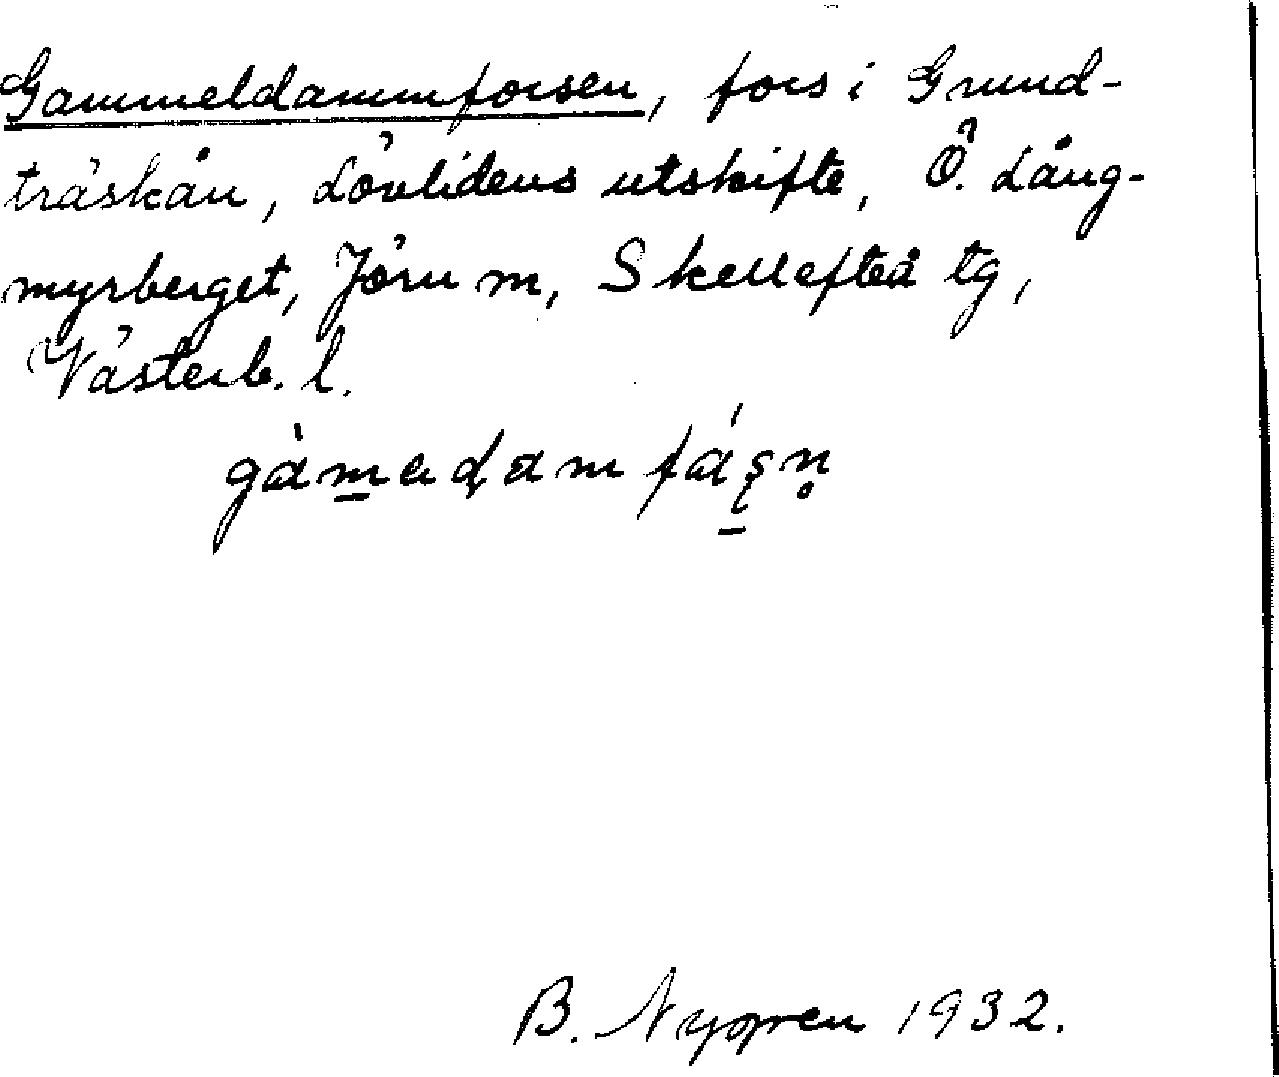 Gammeldammforsen, fors i Grund-
träskån, Lövlidens utskifte, Ö. Lång-
myrberget, Jörn m, Skellefteå tg,
Västerb. l.
B. Nygren 1932.